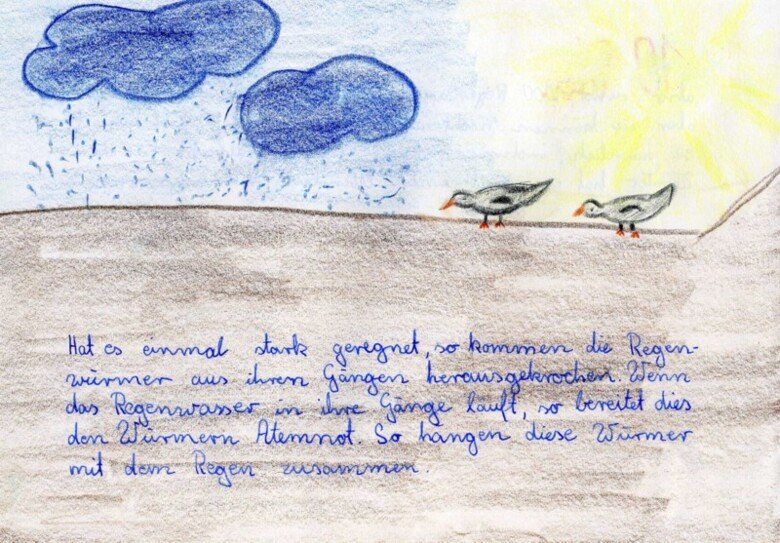 Hat es einmal stark geregnet, so kommen die Regen-
würmer aus ihren Gängen herausgekrochen. Wenn
das Regenwasser in ihre Gänge läuft, so bereitet dies
den Würmern Atemnot. So hängen diese Würmer
mit dem Regen zusammen.